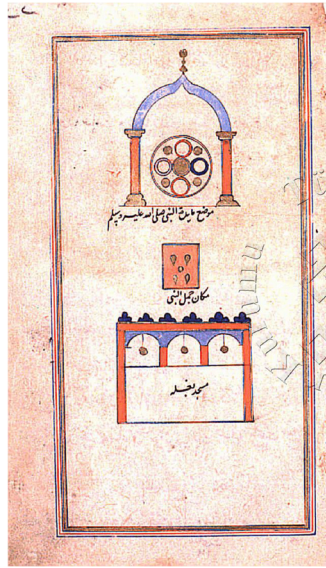 موضع مايدة النبي صلى الله عليه وسلم
مكان النبي
مسجد بغله
Kurumu